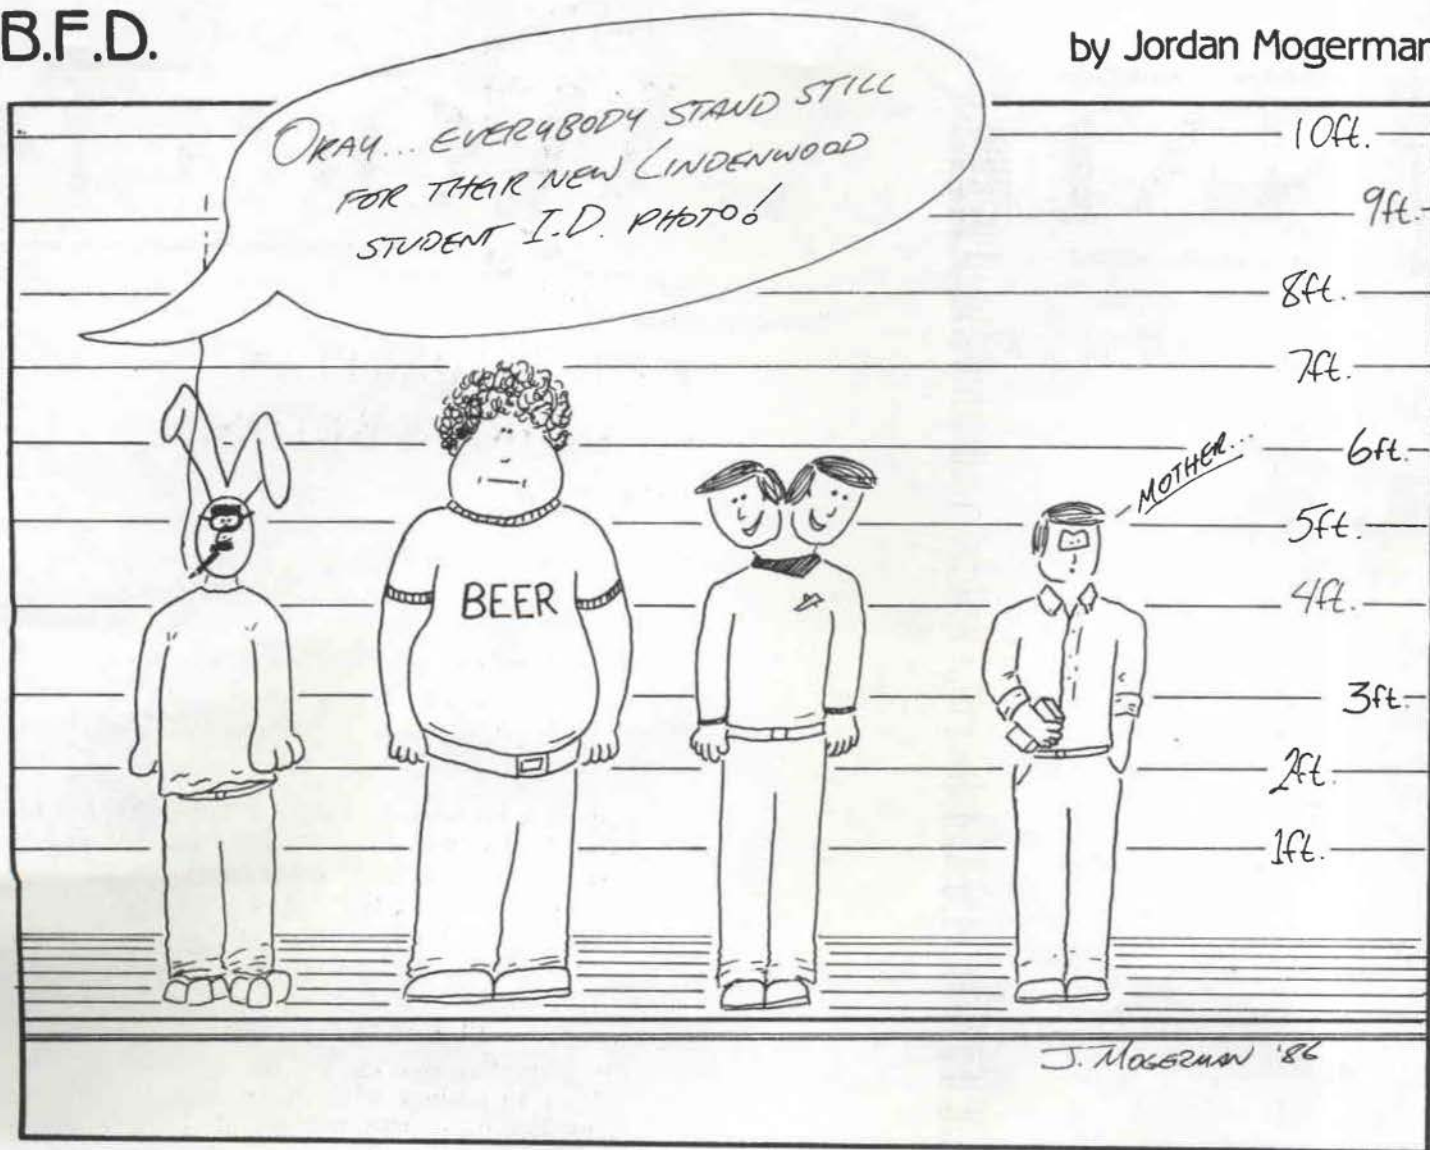 B.F.D.
by Jordan Mogerman
OKAY... EVERYBODY STAND STILL
FOR THEIR NEW LINDENWOOD
STUDENT I.D. PHOTO!
10ft.
9ft.
8ft.
7ft.
6ft.
MOTHER...
5ft.
BEER
4ft.
3ft.
2ft.
1ft.
J. MOGERMAN '86